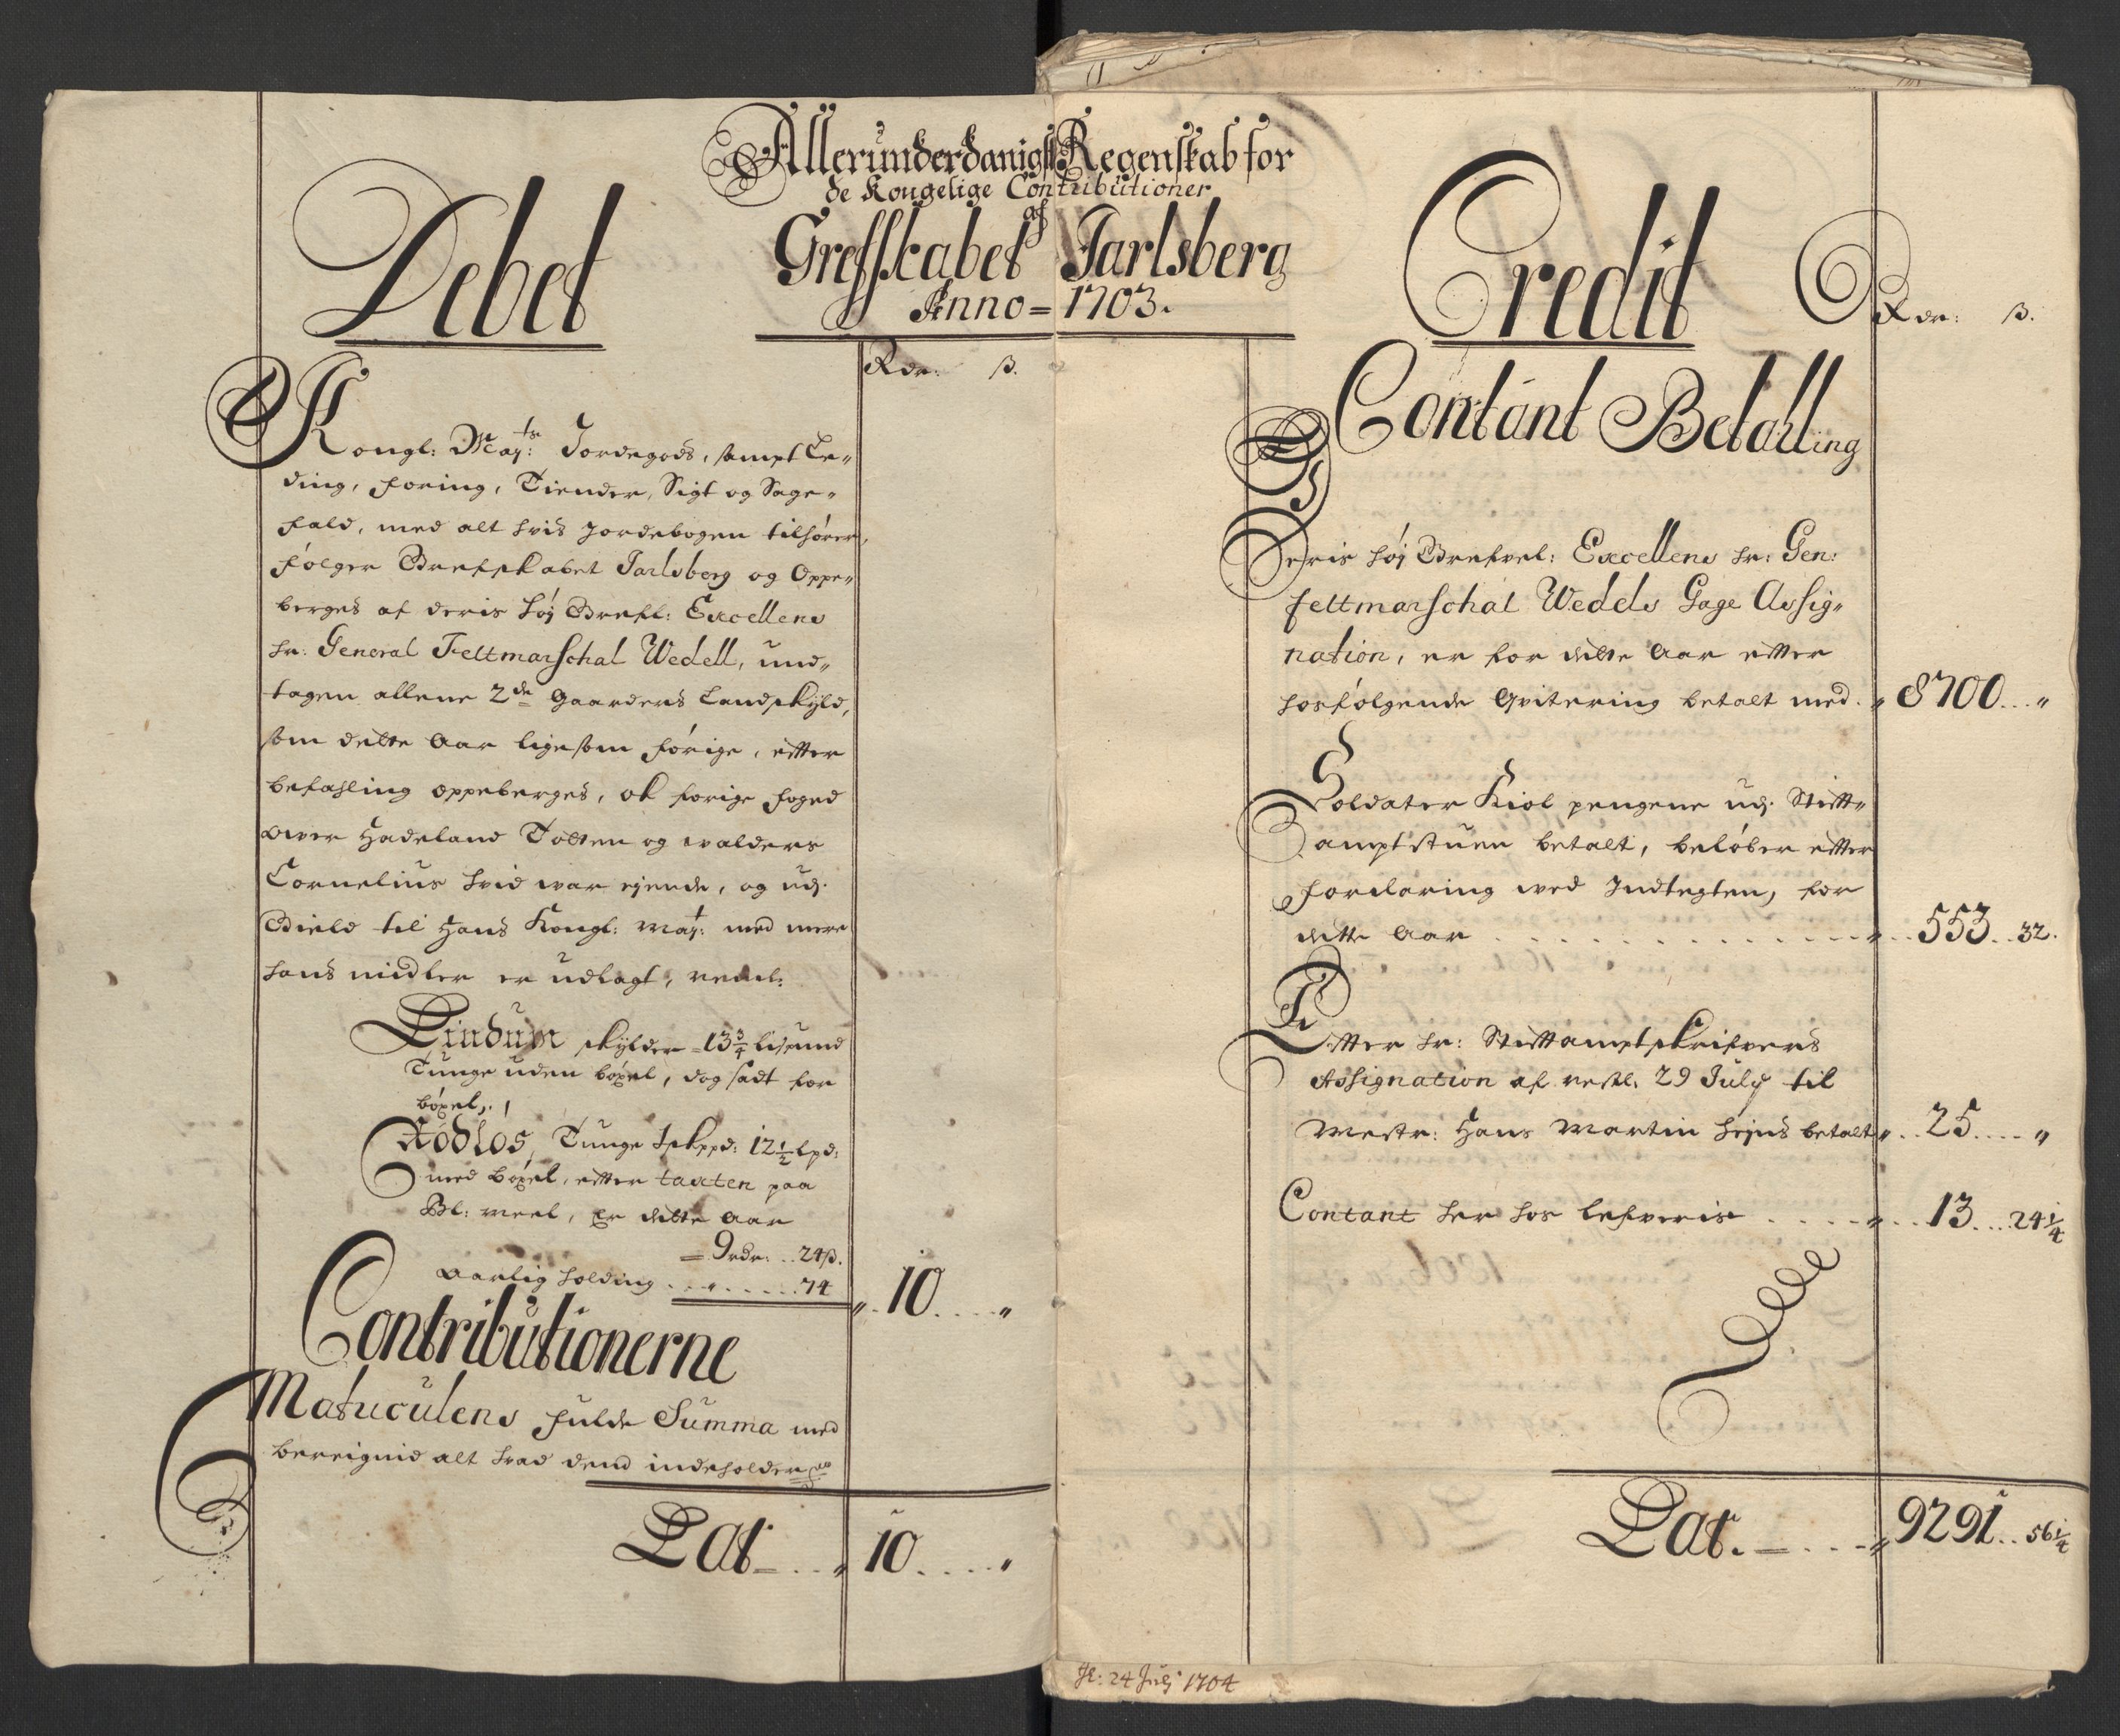 Allerunderdanigst Regenskab for
de Kongelige Contributioner
af
Grefskabet Jarlsberg
Anno = 1703.
Debet
Rdr: ß.
Kongl: Mayts: Jordegods, sampt Le„
ding, foring, Tiender, Sigt og Sage„
fald, med alt hvis Jordebogen tilhører,
følger Grefskabet Jarlsberg og Oppe„
berges af deris høj Grefl: Excellens
hr: General Feltmarschal Wedell, und„
tagen allene 2de gaarders Landskyld,
som dette Aar ligesom förige, efter
befahling oppeberges, ok forige foged
over Hadeland Toten og walders
Cornelius hvid war ejende, og udj
Gield til Hans Kongl: Mayt: med mere
hans midler er udlagt, neml:
Lindum skylder = 13 3/4 lispund
Tunge uden böxel, dog sadt for
böxel,
Rödlös, Tunge 1 skppd: 12 1/2 lpd:
med böxel, efter taxten paa
Bl: meel, er dette Aar
= 9 rdr: .. 24 ß.
aarlig holding . . „ . . . . . 74
„ . 10 . . . . „
Contributionerne
Matriculens fulde Summa med
beregnid alt hvad dend indeholder
Lat = . . „ 10 . . . . „
Credit
Rdr: ß.
Contant Betalling
Deris høj Grefvel: Excellens hr: Gen:
feltmarschal Wedels Gage Assig„
nation, er for dette Aar efter
hosfølgende Qvitering betalt med . „ 8700 . . . „
Soldater Kiol pengene udj Stift„
amptstuen betalt, beløber efter
forklaring ved Indtegten, for
dette Aar . . . . . . . „ . . 553 . . 32.
Efter hr: Stiftamptskrifvers
Assignation af 29 July til
Mestr: Hans Martin betalt „ . . 25 . . . . „
Contant her hos lefveris . . . . „ . . 13 . . . 24 1/4
Lat. = . . . „ 9291 . . 56 1/4
24 July 1704